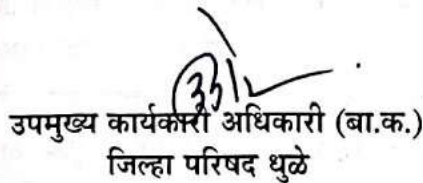 उपमुख्य कार्यकारी अधिकारी (बा.क.)
जिल्हा परिषद धुळे